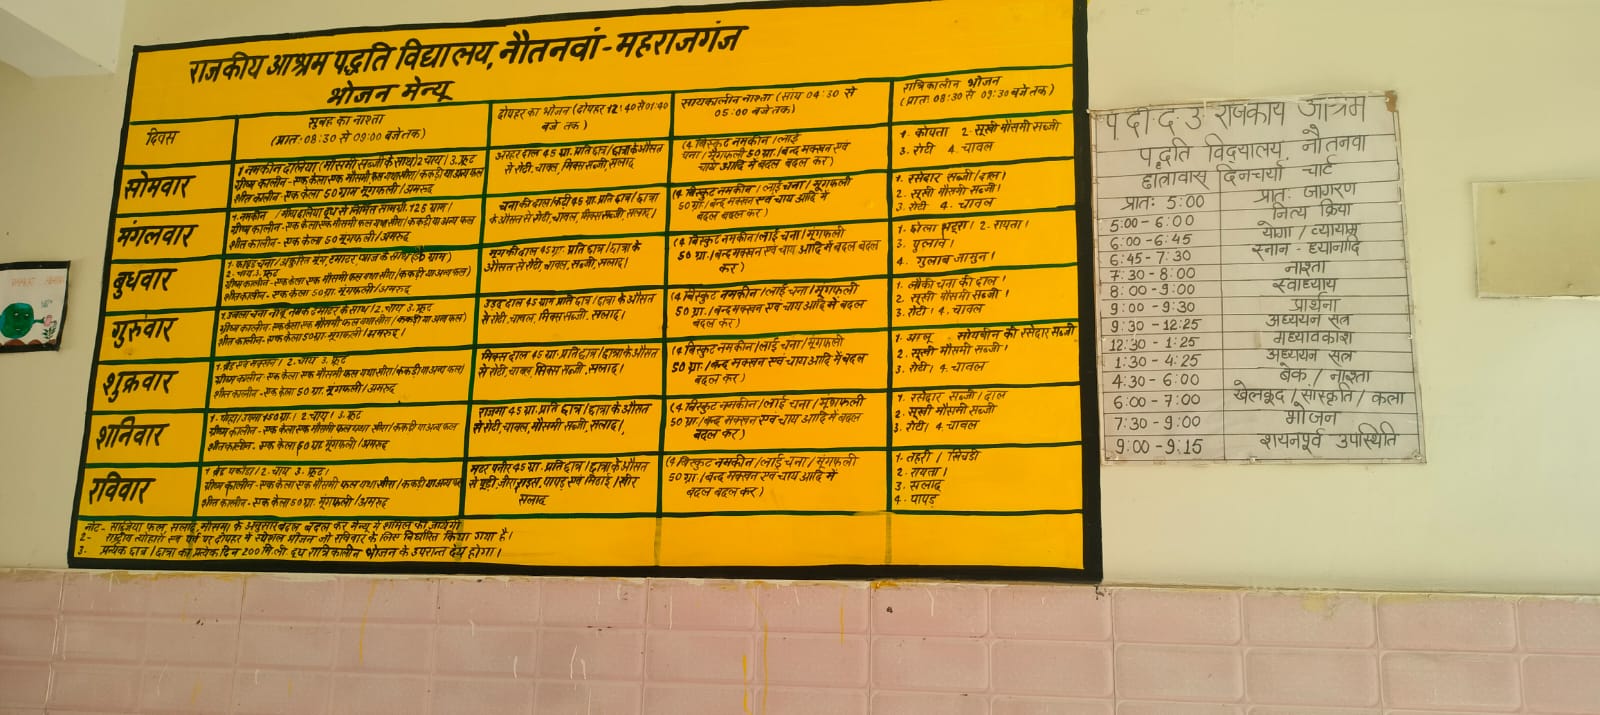 राजकीय आश्रम पद्धति विद्यालय, नौतनवां - महराजगंज
भोजन मेन्यू
दिवस
सुबह का नाश्ता
(प्रात: 08:30 से 09:00 बजे तक)
दोपहर का भोजन (दोपहर 12:40 से 01:40
बजे तक)
सायकालीन नाश्ता (साय 04:30 से
05:00 बजे तक)
रात्रिकालीन भोजन
(प्रात: 08:30 से 09:30 बजे तक)
सोमवार
1. नमकीन दलिया (मौसमी सब्जी के साथ) 2 चाय। 3. फ्रूट
शीत कालीन - एक केला 50 ग्राम मूंगफली / अमरूद
अरहर दाल 45 ग्रा. प्रति छात्र / छात्रा के औसत
से रोटी, चावल, मिक्स सब्जी, सलाद
(4 बिस्कुट नमकीन / लाई
चना / मूंगफली 50 ग्रा. / बन्द मक्खन एवं
चाय आदि में बदल बदल कर)
1. कोफ्ता 2. सूखी मौसमी सब्जी
3. रोटी 4. चावल
मंगलवार
शीत कालीन - एक केला 50 मूंगफली / अमरूद
चना की दाल / कढ़ी 45 ग्रा. प्रति छात्र / छात्रा
के औसत से रोटी, चावल, मिक्स सब्जी, सलाद।
(4 बिस्कुट नमकीन / लाई चना / मूंगफली
50 ग्रा. / बन्द मक्खन एवं चाय आदि में
बदल बदल कर)
1. रसेदार सब्जी / दाल।
2. सूखी मौसमी सब्जी।
3. रोटी 4. चावल
बुधवार
2 - चाय 3. फ्रूट
शीत कालीन - एक केला 50 ग्रा. मूंगफली / अमरूद
मूंग की दाल 45 ग्रा. प्रति छात्र / छात्रा के
औसत से रोटी, चावल, सब्जी, सलाद।
(4 बिस्कुट नमकीन / लाई चना / मूंगफली
50 ग्रा. / बन्द मक्खन एवं चाय आदि में बदल बदल
कर)
1. छोला भटूरा। 2. रायता।
3. पुलाव।
4. गुलाब जामुन।
गुरुवार
शीत कालीन - एक केला 50 ग्रा. मूंगफली / अमरूद।
उड़द दाल 45 ग्राम प्रति छात्र / छात्रा के औसत
से रोटी, चावल, मिक्स सब्जी, सलाद।
(4 बिस्कुट नमकीन / लाई चना / मूंगफली
50 ग्रा. / बन्द मक्खन एवं चाय आदि में बदल
बदल कर)
1. लौकी चना की दाल।
2. सूखी मौसमी सब्जी।
3. रोटी। 4. चावल
शुक्रवार
1. ब्रेड एवं मक्खन। 2. चाय 3. फ्रूट
शीत कालीन - एक केला 50 ग्रा. मूंगफली / अमरूद
मिक्स दाल 45 ग्रा. प्रति छात्र / छात्रा के औसत
से रोटी, चावल, मिक्स सब्जी, सलाद।
(4 बिस्कुट नमकीन / लाई चना / मूंगफली
50 ग्रा. / बन्द मक्खन एवं चाय आदि में बदल
बदल कर)
1. आलू सोयाबीन की रसेदार सब्जी
2. सूखी मौसमी सब्जी।
3. रोटी। 4. चावल
शनिवार
शीत कालीन - एक केला 50 ग्रा. मूंगफली / अमरूद
राजमा 45 ग्रा. प्रति छात्र / छात्रा के औसत
से रोटी, चावल, मौसमी सब्जी, सलाद।
(4 बिस्कुट नमकीन / लाई चना / मूंगफली
50 ग्रा. / बन्द मक्खन एवं चाय आदि में बदल
बदल कर)
1. रसेदार सब्जी / दाल
2. सूखी मौसमी सब्जी
3. रोटी। 4. चावल
रविवार
1. ब्रेड पकोड़ा / 2. चाय 3. फ्रूट।
शीत कालीन - एक केला 50 ग्रा. मूंगफली / अमरूद
मटर पनीर 45 ग्रा. प्रति छात्र / छात्रा के औसत
से पूड़ी, जीरा राइस, पापड़ एवं मिठाई / खीर
सलाद
(4 बिस्कुट नमकीन / लाई चना / मूंगफली
50 ग्रा. / बन्द मक्खन एवं चाय आदि में
बदल बदल कर)
1. तहरी / खिचड़ी
2. रायता।
3. सलाद
4. पापड़
नोट - सब्जियां फल, सलाद, मौसम के अनुसार बदल बदल कर मेन्यू में शामिल की जायेगी
2 - राष्ट्रीय त्यौहारों एवं पर्व पर दोपहर में स्पेशल भोजन जो रविवार के लिए निर्धारित किया गया है।
3. प्रत्येक छात्र / छात्रा को प्रत्येक दिन 200 मि.ली. दूध रात्रिकालीन भोजन के उपरान्त देय होगा।
पं दी द उ. राजकीय आश्रम
पद्धति विद्यालय, नौतनवा
छात्रावास दिनचर्या चार्ट
प्रातः 5:00 प्रातः जागरण
5:00 - 6:00 नित्य क्रिया
6:00 - 6:45 योगा / व्यायाम
6:45 - 7:30 स्नान - ध्यानादि
7:30 - 8:00 नाश्ता
8:00 - 9:00 स्वाध्याय
9:00 - 9:30 प्रार्थना
9:30 - 12:25 अध्ययन सत्र
12:30 - 1:25 मध्यावकाश
1:30 - 4:25 अध्ययन सत्र
4:30 - 6:00 ब्रेक / नाश्ता
6:00 - 7:00 खेलकूद / सांस्कृति / कला
7:30 - 9:00 भोजन
9:00 - 9:15 शयनपूर्व उपस्थिति